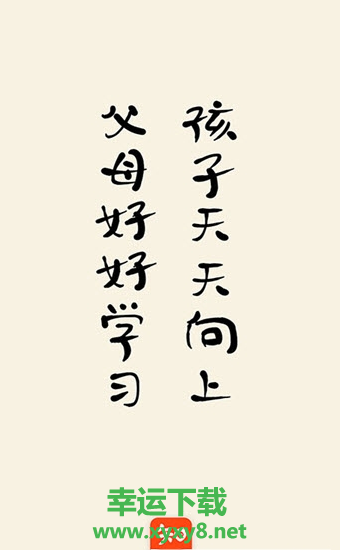 父母好好学习
孩子天天向上
幸运下载
www.xyxy8.net
知